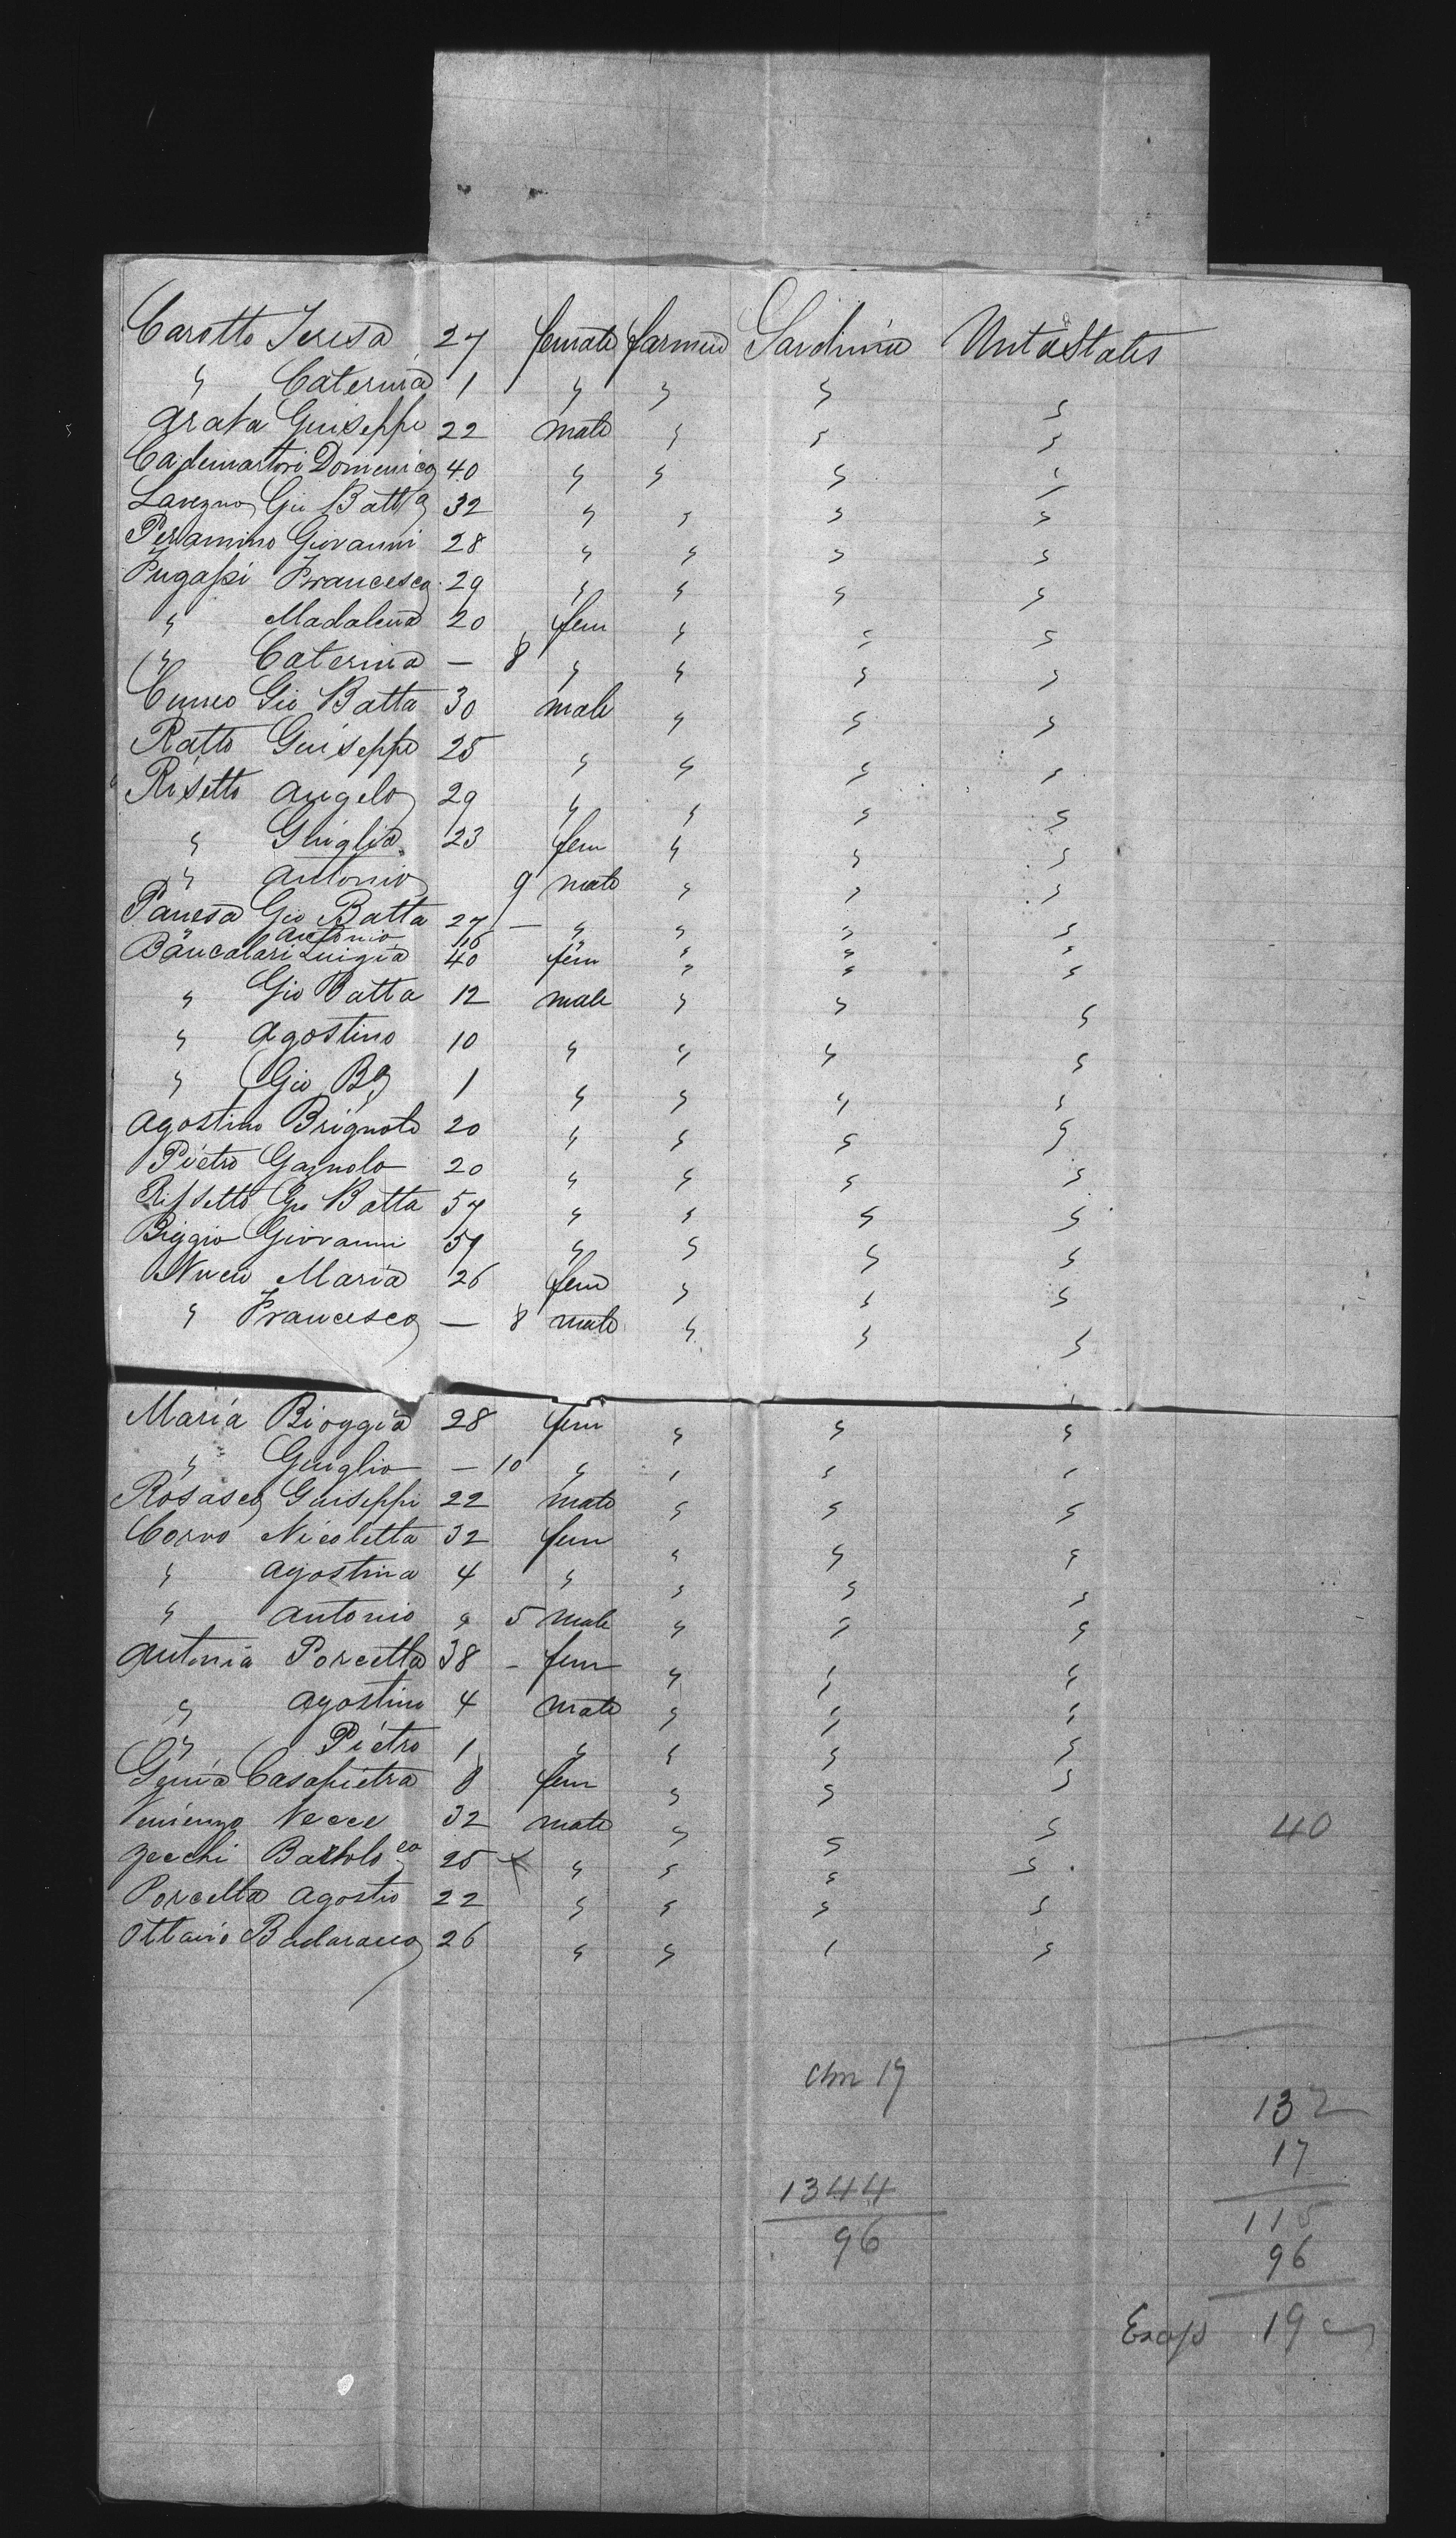 Carotto Teresa 27 female farmer Sardinia Unita States
" Caterina 1 " " " "
Grata Guiseppe 22 male " " "
Cademartori Domenico 40 " " " "
Lavezno Gio Batta 32 " " " "
Peramino Giovanni 28 " " " "
Fugassi Francesco 29 " " " "
" Madalena 20 fem " " "
" Caterina — 8 " " " "
Cuneo Gio Batta 30 male " " "
Ratto Guiseppe 25 " " " "
Risetto Angelo 29 " " " "
" Guiglia 23 fem " " "
" Antonio 9 male " " "
Panesa Gio Batta 27 — " " " "
" Antonio 16 " " " "
Bancalari Luigia 40 fem " " "
" Gio Batta 12 male " " "
" Agostino 10 " " " "
" Gio Ba 1 " " " "
Agostino Brignolo 20 " " " "
Pietro Gagnolo 20 " " " "
Rissetto Gio Batta 57 " " " "
Biggio Giovanni 59 " " " "
Maria 26 fem " " "
" Francesco — 8 male " " "
Maria Bioggia 28 fem " " "
" Guiglio — 10 " " " "
Rosasco Guiseppi 22 male " " "
Corvo Nicoletta 32 fem " " "
" Agostina 4 " " " "
" Antonio " 5 male " " "
Antonia Porcella 38 - fem " " "
" Agostino 4 male " " "
" Pietro 1 " " " "
Casapietra 8 fem " " "
Venienzo Necce 32 male " " " 40
Zecchi Bartoloeo 25 x " " " "
Porcella Agostio 22 " " " "
Ottavio Badaracco 26 " " " "
Chn 17
132
17
1344
115
96
96
19